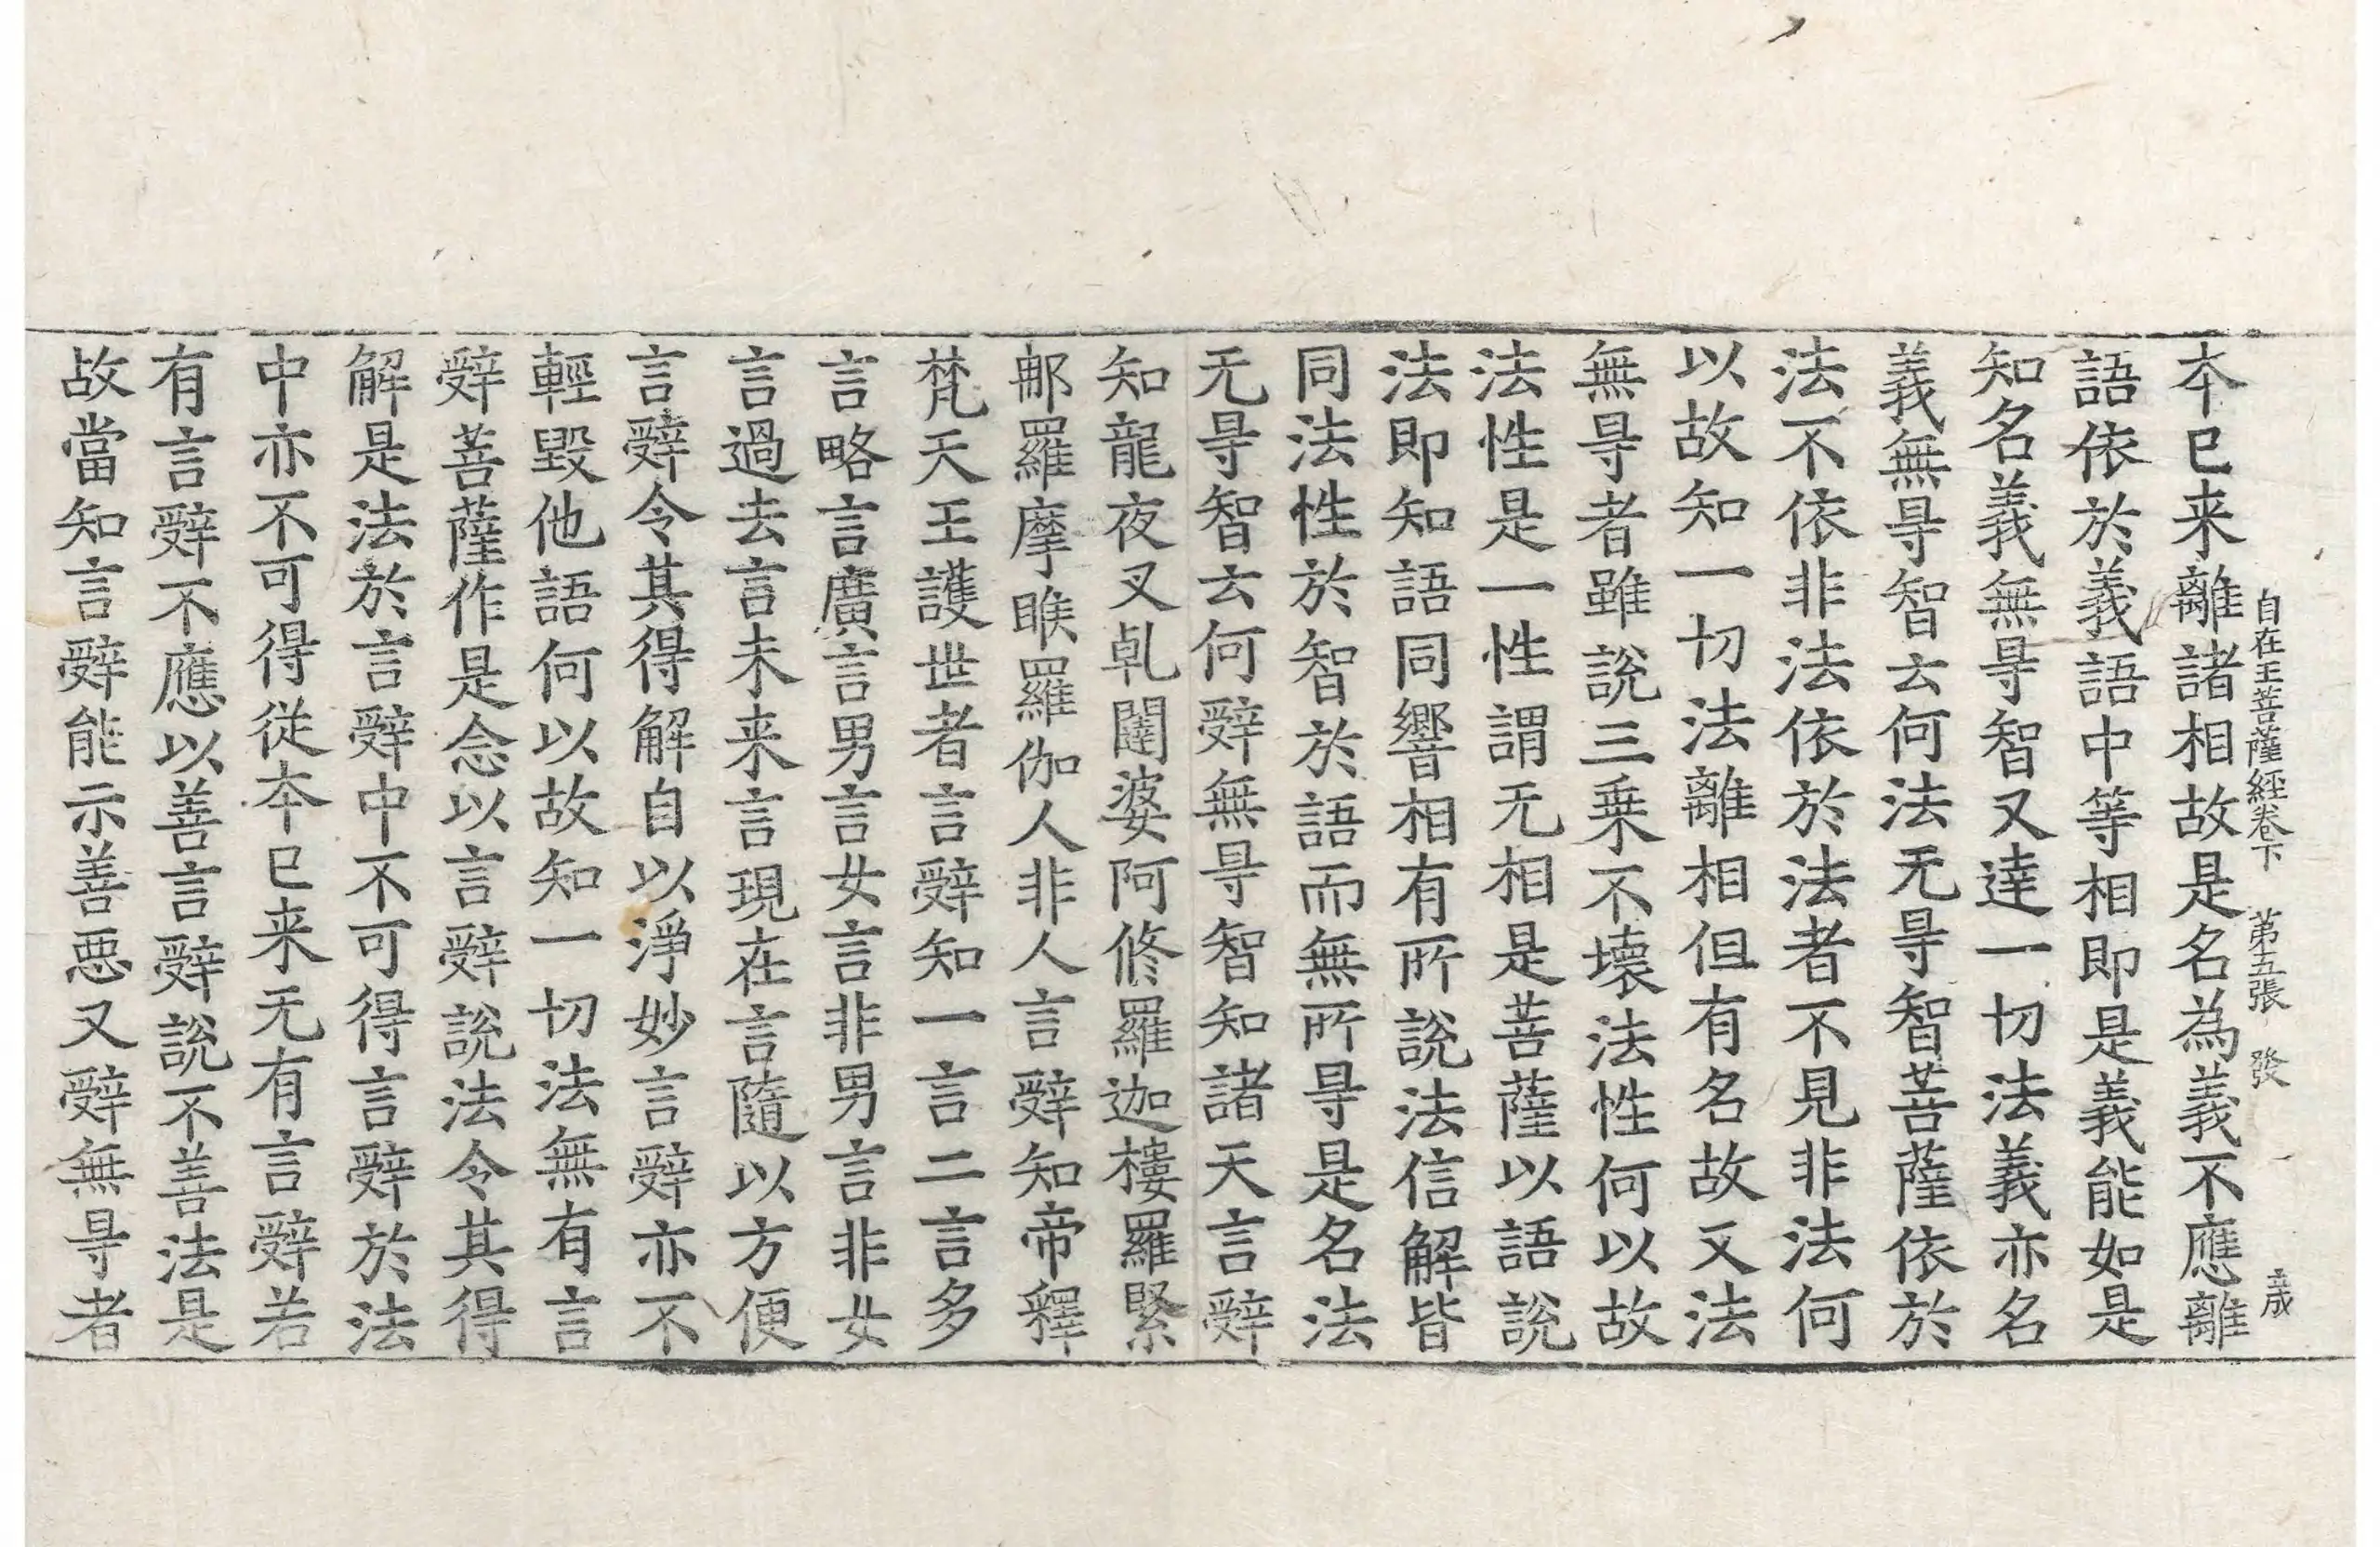 自在王菩薩經卷下 苐五張 發 玄成
夲已来離諸相故是名為義不應離
語依於義語中等相即是義能如是
知名義無㝵智又達一切法義亦名
義無㝵智云何法无㝵智菩薩依於
法不依非法依於法者不見非法何
以故知一切法離相但有名故又法
無㝵者雖說三乗不壞法性何以故
法性是一性謂无相是菩薩以語說
法即知語同響相有所說法信解皆
同法性於智於語而無所㝵是名法
无㝵智云何辤無㝵智知諸天言辤
知龍夜叉乹闥婆阿修羅迦樓羅緊
那羅摩睺羅伽人非人言辤知帝釋
梵天王護世者言辤知一言二言多
言略言廣言男言女言非男言非女
言過去言未来言現在言隨以方便
言辤令其得解自以淨妙言辤亦不
輕毀他語何以故知一切法無有言
辤菩薩作是念以言辤說法令其得
解是法於言辤中不可得言辤於法
中亦不可得從夲已来无有言辤若
有言辤不應以善言辤說不善法是
故當知言辤能示善惡又辤無㝵者